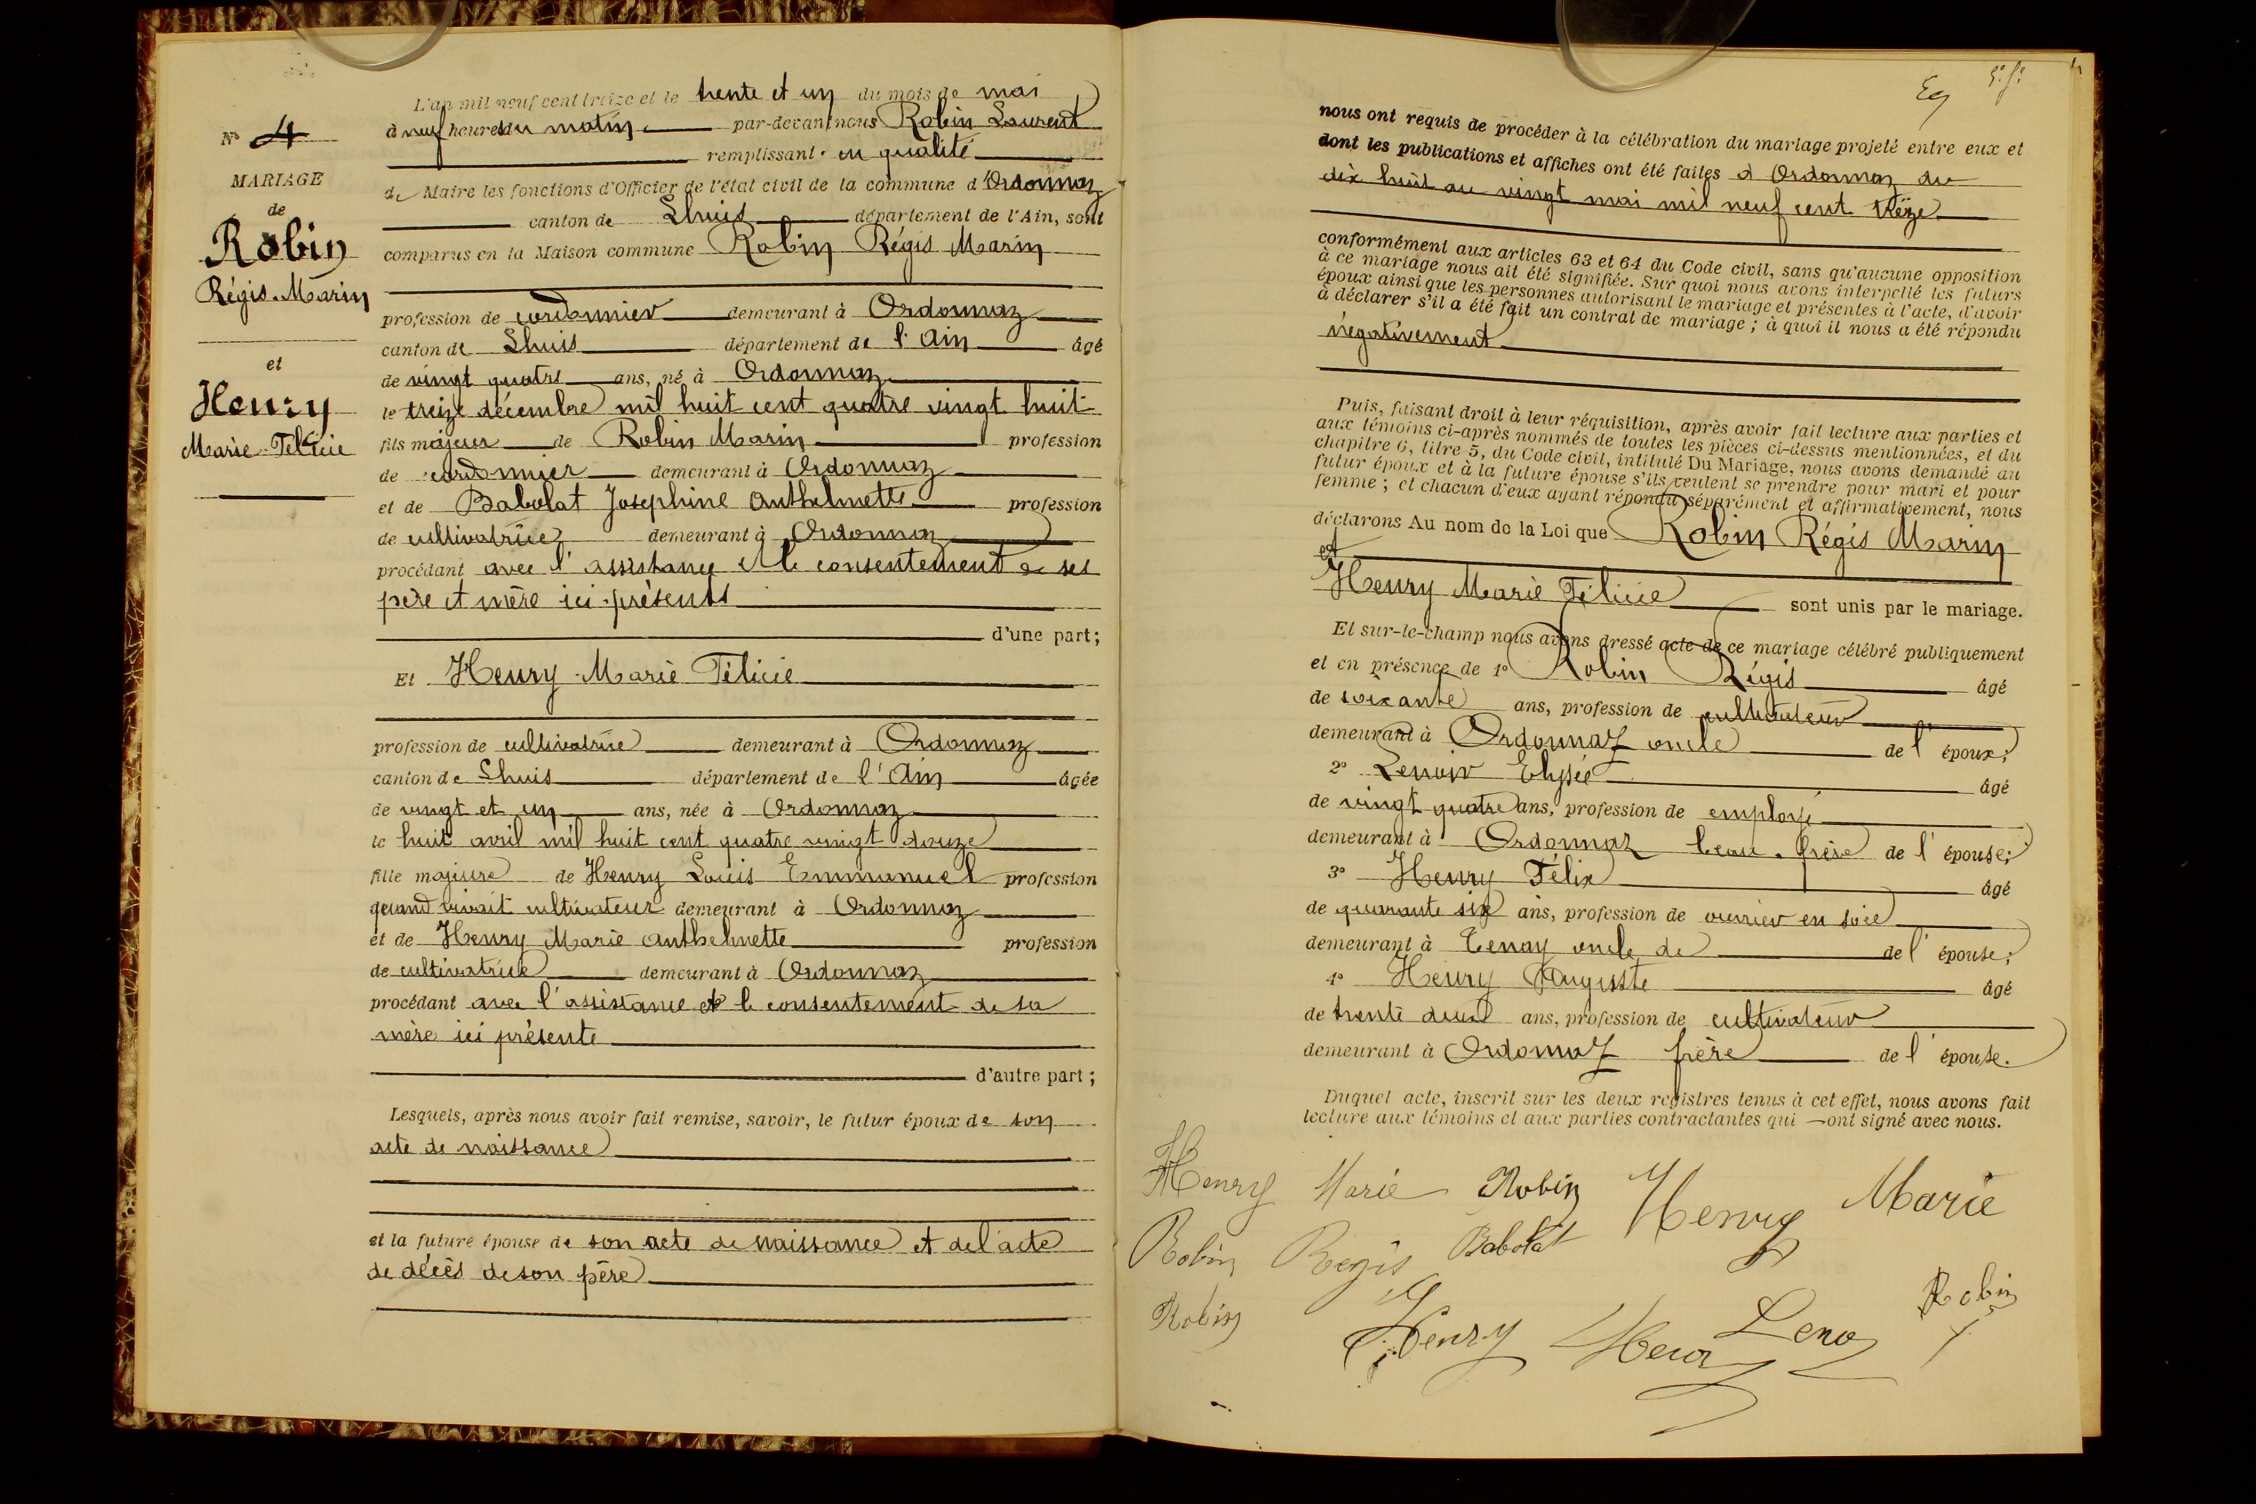 L'an mil neuf cent treize et le trente et un du mois de mai
à neuf heures du matin par-devant nous Robin Laurent
remplissant en qualité
de Maire les fonctions d'Officier de l'état civil de la commune d'Ordonnaz
canton de Lhuis département de l'Ain, sont
comparus en la Maison commune Robin Régis Marin
N° 4
MARIAGE
de
Robin
Régis Marin
et
Henry
Marie Félicie
profession de cordonnier demeurant à Ordonnaz
canton de Lhuis département de l'Ain âgé
de vingt quatre ans, né à Ordonnaz
le treize décembre mil huit cent quatre vingt huit
fils majeur de Robin Marin profession
de cordonnier demeurant à Ordonnaz
et de Babolat Josephine Anthelmette profession
de cultivatrice demeurant à Ordonnaz
procédant avec l'assistance et le consentement de ses
père et mère ici présents
d'une part;
Et Henry Marie Félicie
profession de cultivatrice demeurant à Ordonnaz
canton de Lhuis département de l'Ain âgée
de vingt et un ans, née à Ordonnaz
le huit avril mil huit cent quatre vingt douze
fille majeure de Henry Louis Emmanuel profession
quand vivait cultivateur demeurant à Ordonnaz
et de Henry Marie Anthelmette profession
de cultivatrice demeurant à Ordonnaz
procédant avec l'assistance et le consentement de sa
mère ici présente
d'autre part;
Lesquels, après nous avoir fait remise, savoir, le futur époux de son
acte de naissance
et la future épouse de son acte de naissance et de l'acte
de décès de son père
nous ont requis de procéder à la célébration du mariage projeté entre eux et
dont les publications et affiches ont été faites à Ordonnaz du
dix huit au vingt mai mil neuf cent treize
conformément aux articles 63 et 64 du Code civil, sans qu'aucune opposition
à ce mariage nous ait été signifiée. Sur quoi nous avons interpellé les futurs
époux ainsi que les personnes autorisant le mariage et présentes à l'acte, d'avoir
à déclarer s'il a été fait un contrat de mariage; à quoi il nous a été répondu
négativement
Puis, faisant droit à leur réquisition, après avoir fait lecture aux parties et
aux témoins ci-après nommés de toutes les pièces ci-dessus mentionnées, et du
chapitre 6, titre 5, du Code civil, intitulé Du Mariage, nous avons demandé au
futur époux et à la future épouse s'ils veulent se prendre pour mari et pour
femme; et chacun d'eux ayant répondu séparément et affirmativement, nous
déclarons Au nom de la Loi que Robin Régis Marin
et
Henry Marie Félicie sont unis par le mariage.
Et sur-le-champ nous avons dressé acte de ce mariage célébré publiquement
et en présence de 1° Robin Régis âgé
de soixante ans, profession de cultivateur
demeurant à Ordonnaz oncle de l'époux;
2° Lenoir Elysée âgé
de vingt quatre ans, profession de employé
demeurant à Ordonnaz beau-frère de l'épouse;
3° Henry Félix âgé
de quarante six ans, profession de ouvrier en soie
demeurant à Tenay oncle de de l'épouse;
4° Henry Auguste âgé
de trente deux ans, profession de cultivateur
demeurant à Ordonnaz frère de l'épouse.
Duquel acte, inscrit sur les deux registres tenus à cet effet, nous avons fait
lecture aux témoins et aux parties contractantes qui ont signé avec nous.
Henry Marie Robin Henry Marie
Robin Regis Babolat
Robin Henry Robin